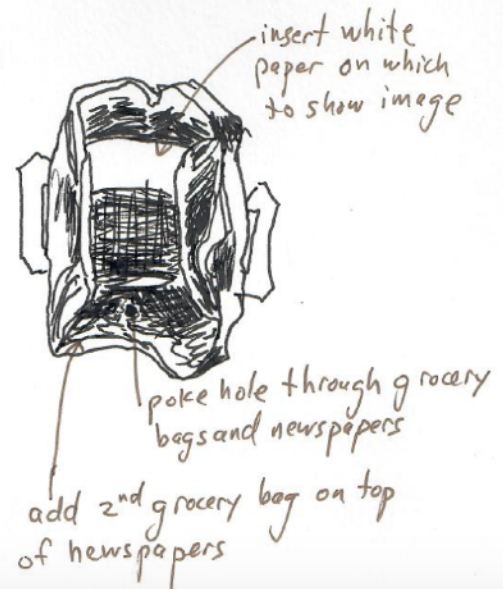 insert white
paper on which
to show image
poke hole through grocery
bags and newspapers
add 2nd grocery bag on top
of newspapers